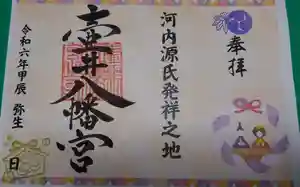 奉拝
河内源氏発祥之地
壷井八幡宮
令和六年甲辰 弥生
日